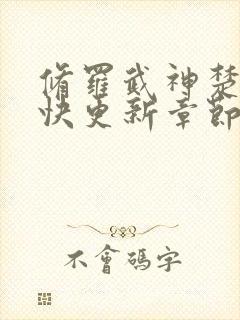 脩羅武神楚
快更新章節
不會碼字